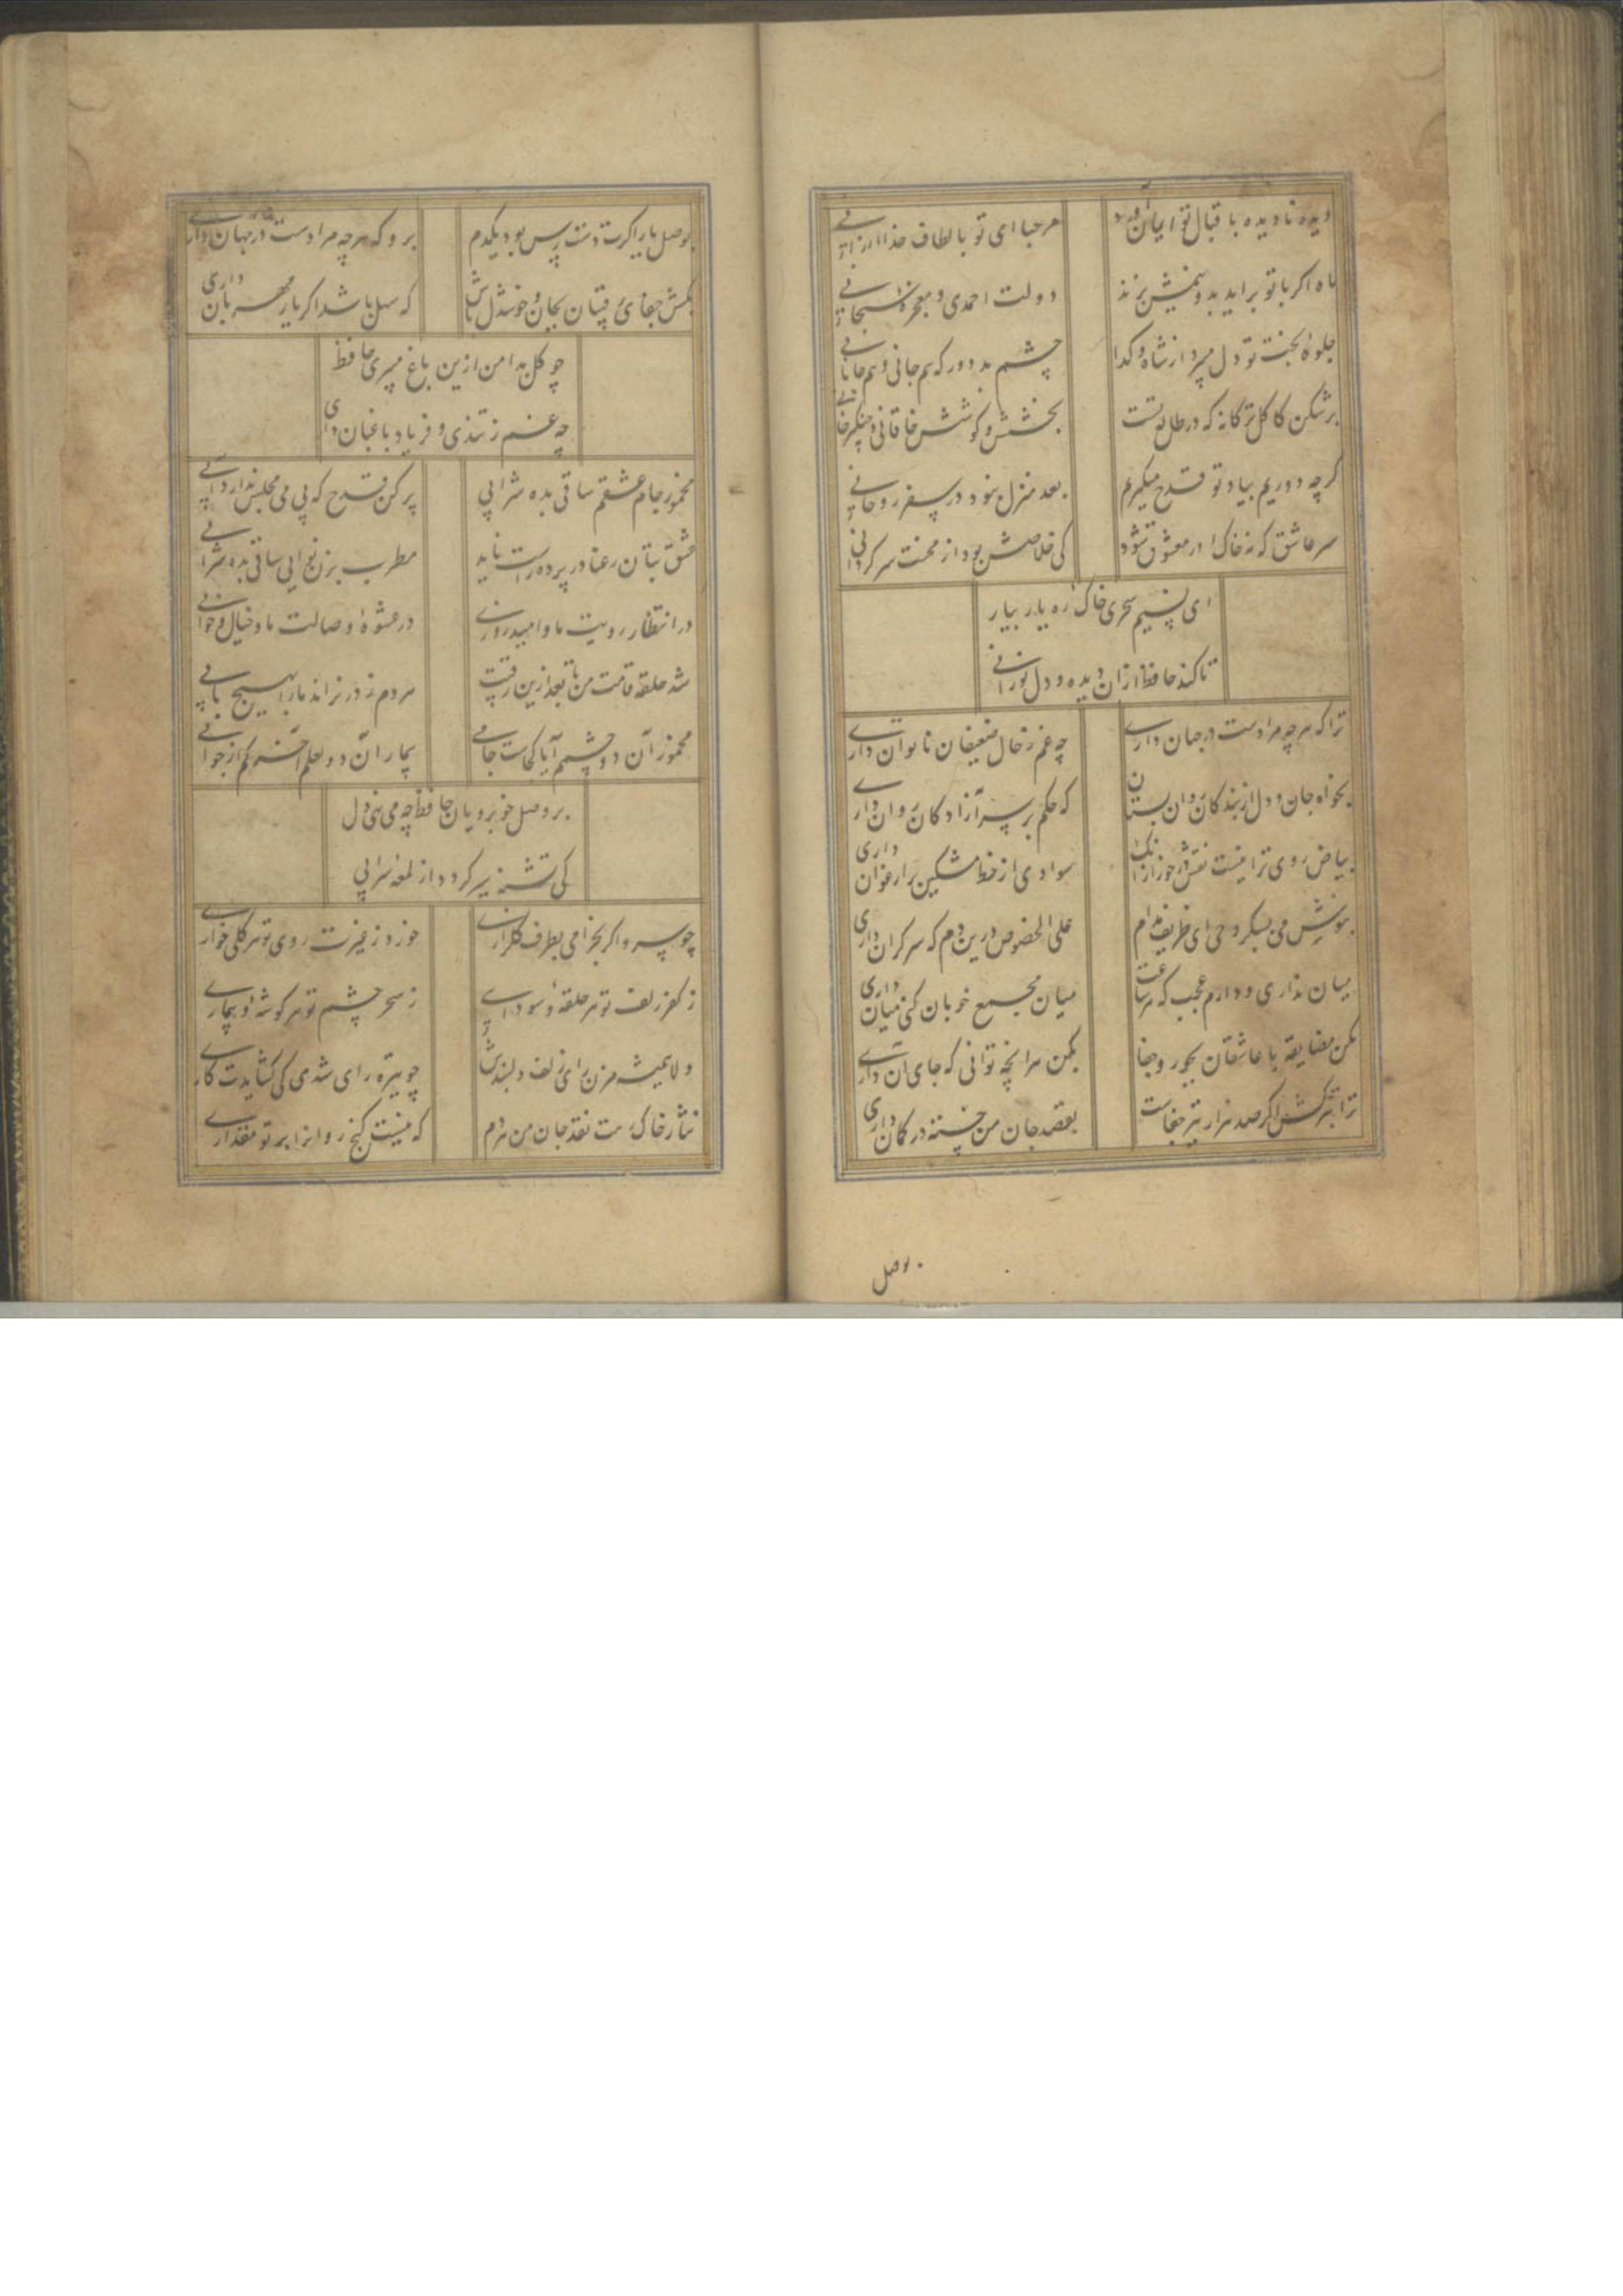 دیده نادیده باقبال تو ایمان آورد مرحبا ای تو بالطاف خدا ارزانی
ماه اکر با تو براید بدو نیمش بزنند دولت احمدی و معجزه سبحانی
جلوه بخت تو دل میبرد از شاه و کدا چشم بد دور که هم جانی و هم جانانی
برشکن کاکل ترکانه که در طالع تست بخشش و کوشش خاقانی و چنکیزخانی
کرچه دوریم بیاد تو قدح میکیریم بعد منزل نبود در سفر روحانی
سر عاشق که نه خاک در معشوق شود کی خلاصش بود از محنت سرکردانی
ای نسیم سحری خاک ره یار بیار
تا کند حافظ ازان دیده و دل نورانی
ترا که هرچه مرادست در جهان داری چه غم ز حال ضعیفان ناتوان داری
بخواه جان و دل از بندکان و روان بستان که حکم بر سر آزادکان روان داری
بیاض روی ترا نیست نقش در خور ازانک سوادی از خط مشکین بر ارغوان داری
بنوش می که سبکروحی ای ظریف مدام علی الخصوص درین دم که سرکران داری
میان نداری و دارم عجب که هر ساعت میان مجمع خوبان کنی میان داری
مکن مضایقه با عاشقان بجور و جفا بکن هرانچه توانی که جای آن داری
ترا بترکش اکر صد هزار تیر جفاست بقصد جان من خسته در کمان داری
بوصل
بوصل یار اکرت دست رس بود یکدم برو که هرچه مرادست در جهان داری
بکش جفای رقیبان بجان و خوشدل باش که سهل باشد اکر یار مهربان داری
چو کل بدامن ازین باغ میبری حافظ
چه غم ز تندی و فریاد باغبان داری
مخمور جام عشقم ساقی بده شرابی پر کن قدح که بی می مجلس ندارد آبی
عشق بتان رعنا در پرده راست ناید مطرب بزن نوایی ساقی بده شرابی
در انتظار رویت ما و امیدواری در عشوه وصالت ما و خیال و خوابی
شد حلقه قامت من تا بعد ازین رقیبت مردم ز در نراند مارا بهیچ بابی
مخمور آن دو چشمم آیا کجاست جامی بیمار آن دو لعلم آخر کم از جوابی
بر وصل خوبرویان حافظ چه می نهی دل
کی تشنه سیر کردد از لمعه سرابی
چو سرو اکر بخرامی بطرف کلزاری خورد ز غیرت روی تو هر کلی خاری
ز کفر زلف تو هر حلقه و سودایی ز سحر چشم تو هر کوشه و بیماری
دلا همیشه مزن رای زلف دلبندش چو تیره رای شدی کی کشایدت کاری
نثار خاک رهت نقد جان من هردم که نیست کنج روانرا بر تو مقداری